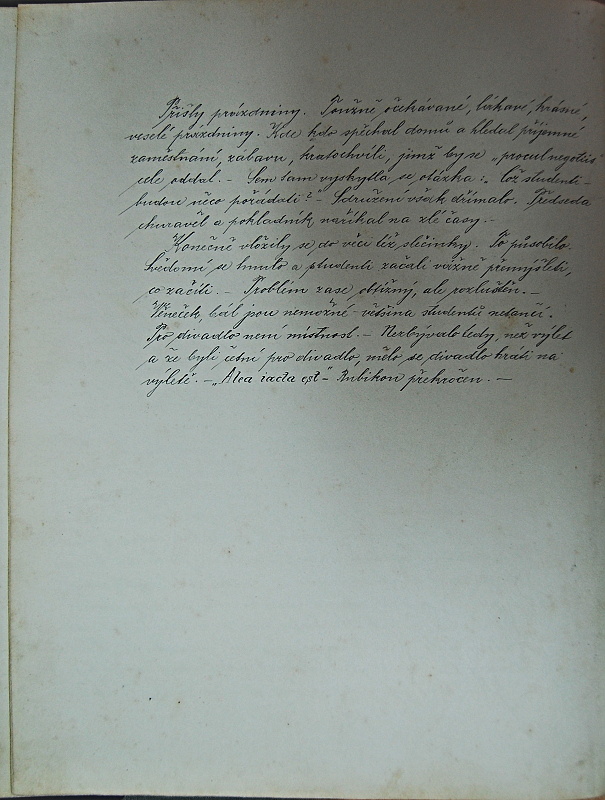 Přišly prázdniny. Toužně očekávané, lákavé, krásné,
veselé prázdniny. Kde kdo spěchal domů a hledal příjemné
zaměstnání, zábavu, kratochvíli, jimž by se „procul negotiis"
cele oddal. – Sem tam vyskytla se otázka: „Což studenti –
budou něco pořádati?" – Sdružení však dřímalo. Předseda
churavěl a pokladník naříkal na zlé časy. –
Konečně vložily se do věci též slečinky. To působilo.
Svědomí se hnulo a studenti začali vážně přemýšleti,
co začíti. – Problém zase obtížný, ale rozluštěn. –
Věneček, bál jsou nemožné – většina studentů netančí.
Pro divadlo není místnost. – Nezbývalo tedy, než výlet
a že byli četní pro divadlo, mělo se divadlo hráti na
výletě. – „Alea iacta est" – Rubikon překročen. –